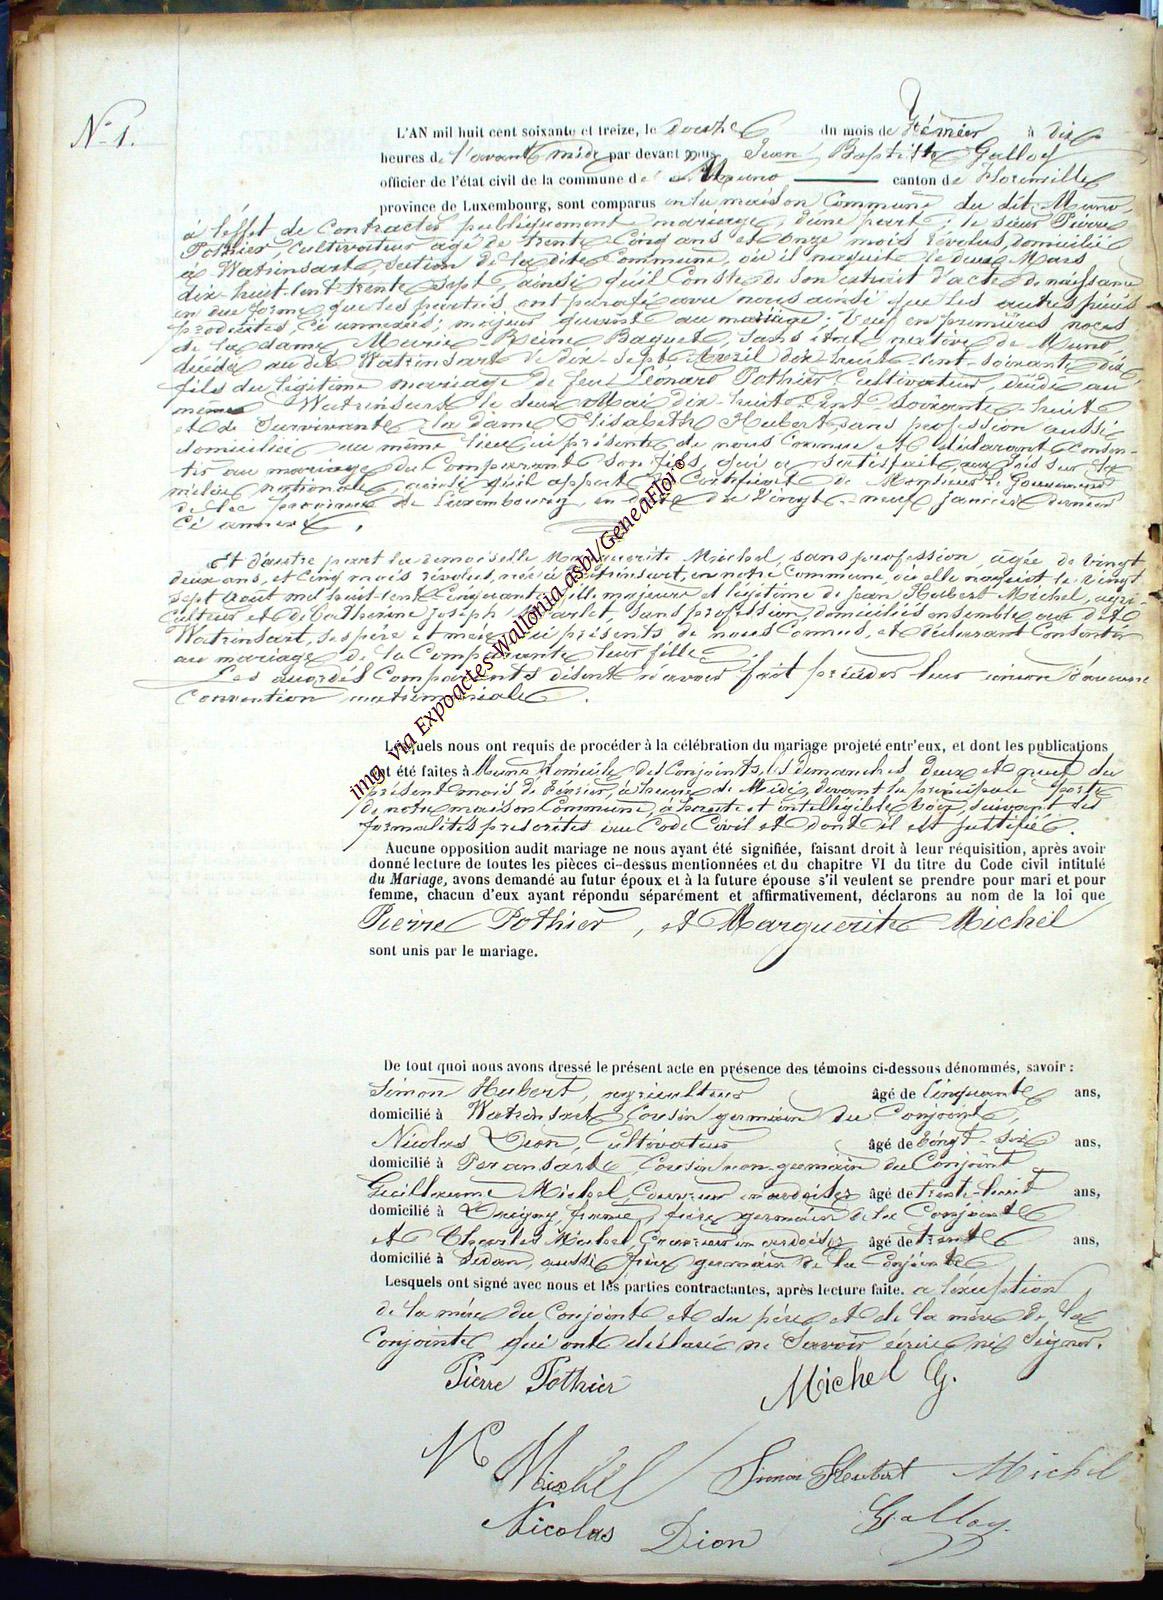 N° 1.
L'AN mil huit cent soixante et treize, le douze du mois de Février à dix
heures de l'avant midi par devant nous Jean Baptiste Galloy
officier de l'état civil de la commune de Muno canton de Florenville
province de Luxembourg, sont comparus en la maison Commune du dit Muno,
à l'effet de contracter publiquement mariage, d'une part : le sieur Pierre
Pothier, Cultivateur âgé de trente Cinq ans et onze mois révolus, domicilié
à Watrinsart, section de la dite Commune, où il naquit le deux Mars
dix-huit-cent-trente-sept, ainsi qu'il Conste de son extrait d'acte de naissance
en due forme que les parties ont parafé avec nous ainsi que les autres pièces
produites, Ci annexés ; majeur quant au mariage ; Veuf en premières noces
de la dame Marie Reine Baquet, sans état native de Muno
décédée au dit Watrinsart le dix-sept Avril dix-huit-cent-soixante-dix,
fils du légitime mariage de feu Léonard Pothier Cultivateur, décédé au
même Watrinsart le deux Mai dix-huit-Cent-soixante-huit
et de Survivante la dame Elisabeth Hubert sans profession aussi
domiciliée au même lieu ci présente de nous Connue et déclarant Consen-
tir au mariage du Comparant son fils, qui a satisfait aux lois sur la
milice nationale, ainsi qu'il appert du Certificat de Monsieur le Gouverneur
de la province de Luxembourg, en date du Vingt-neuf Janvier dernier
Ci annexé.
Et d'autre part la demoiselle Marguerite Michel, sans profession, âgée de vingt
deux ans, et Cinq mois révolus, née à Watrinsart, en notre Commune, où elle naquit le vingt
sept Août mil huit-cent Cinquante, fille majeure et légitime de Jean Hubert Michel, agri-
culteur et de Catherine Joseph, sans profession, domiciliés ensemble au dit
Watrinsart, ses père et mère, ci présents de nous Connus, et déclarant Consentir
au mariage de la Comparante leur fille.
Les accordés Comparants disent n'avoir fait précéder leur union d'aucune
Convention matrimoniale.
Lesquels nous ont requis de procéder à la célébration du mariage projeté entr'eux, et dont les publications
ont été faites à Muno domicile des Conjoints, les dimanches deux et neuf du
présent mois de Février, à heure de Midi, devant la principale porte
de notre maison Commune, à haute et intelligible Voix, suivant les
formalités prescrites au Code Civil et dont il est justifié.
Aucune opposition audit mariage ne nous ayant été signifiée, faisant droit à leur réquisition, après avoir
donné lecture de toutes les pièces ci-dessus mentionnées et du chapitre VI du titre du Code civil intitulé
du Mariage, avons demandé au futur époux et à la future épouse s'il veulent se prendre pour mari et pour
femme, chacun d'eux ayant répondu séparément et affirmativement, déclarons au nom de la loi que
Pierre Pothier, et Marguerite Michel
sont unis par le mariage.
De tout quoi nous avons dressé le présent acte en présence des témoins ci-dessous dénommés, savoir :
Simon Hubert, agriculteur âgé de Cinquante ans,
domicilié à Watrinsart Cousin germain du Conjoint,
Nicolas Dion, Cultivateur âgé de Vingt-six ans,
domicilié à Pexansart, Cousin non-germain du Conjoint
Guillaume Michel, Couvreur en ardoises âgé de trente-huit ans,
domicilié à france, frère germain de la Conjointe
et Charles Michel, Couvreur en ardoises âgé de trente ans,
domicilié à Sédan, aussi frère germain de la Conjointe
Lesquels ont signé avec nous et les parties contractantes, après lecture faite. à l'exception
de la mère du Conjoint et du père et de la mère de la
Conjointe qui ont déclaré ne Savoir écrire ni Signer.
Pierre Pothier Michel G.
M Michel Simon Hubert Michel
Nicolas Dion Galloy.
img. via Expoactes-Wallonia asbl/GeneaFlor®